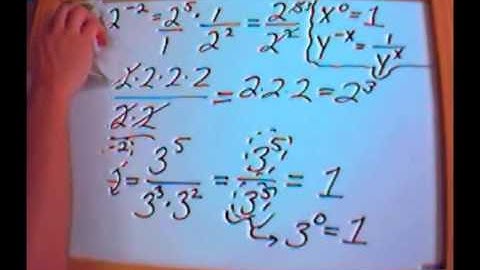 2⁻² = 2⁵/1 · 1/2² = 2⁵/2² x⁰ = 1
y⁻ˣ = 1/yˣ
2·2·2·2/2·2 = 2·2·2 = 2³
-2
3⁵/3³·3² = 3⁵/3⁵ = 1
3⁰ = 1